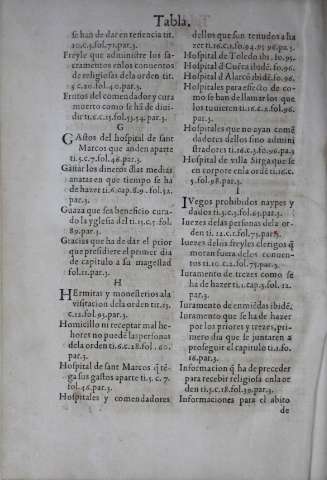 Tabla.
se han de dar en tenencia tit.
10.c.3.fol.71.par.3.
Freyle que administre los sa-
cramentos en los conuentos
de religiosas dela orden tit.
5.c.20.fol.40.par.3.
Frutos del comendador y cura
muerto como se ha de diui-
dir ti.c.15.fol.53.54.par.3.
G
GAstos del hospital de sant
Marcos que anden aparte
ti.5.c.7.fol.48.par.3.
Gastar los dineros dlas medias
anatas en que tiempo se ha
de hazer ti.6.cap.8.9.fol.52.
par.3.
Guaza que sea beneficio cura-
do la yglesia del ti.15.c.5.fol.
89.par.3.
Gracias que ha de dar el prior
que presidiere el primer dia
de capitulo a su magestad
fol.12.par.3.
H
HErmitas y monesterios ala
visitacion dela orden tit.13.
c.12.fol.93.par.3.
Homicillo ni receptar mal he-
hores no puede las personas
dela orden ti.6.c.28.fol.60.
par.3.
Hospital de sant Marcos q̃ tẽ-
ga sus gastos aparte ti.5.c.7.
fol.48.par.3.
Hospitales y comendadores
dellos que son tenudos a ha
zer ti.16.c.1.fo.94.95.96.pa.3.
Hospital de Toledo ibi.fo.95.
Hospital d Cuẽca ibidẽ.fo.96.
Hospital d Alarcõ ibidẽ.fo.96.
Hospitales para efecto de co-
mo se han de llamar los que
los tuuieren ti.16.c.2.fo.96.
par.3.
Hospitales que no ayan comẽ
dadores dellos sino admini
stradores ti.16.c.3.fo.96.pa.3
Hospital de villa Sirga que se
en corpore enla ordẽ ti.16.c.
5.fol.98.par.3.
I
IVegos prohibidos naypes y
dados ti.3.c.3.fol.63.par.3.
Iuezes delas personas dela or-
den ti.12.c.1.fol.75.par.3.
Iuezes delos freyles clerigos q̃
moran fuera delos conuen-
tos ti.10.c.2.fol.75.par.3.
Iuramento de trezes como se
ha de hazer ti.1.cap.3.fol.12.
par.3.
Iuramento de enmiẽdas ibidẽ.
Iuramento que se ha de hazer
por los priores y trezes, pri-
mero dia que se juntaren a
proseguir el capitulo ti.1.fo.
16.par.3.
Informacion q̃ ha de preceder
para recebir religiosa enla or
den ti.2.c.18.fol.39.par.3.
Informaciones para el abito
de